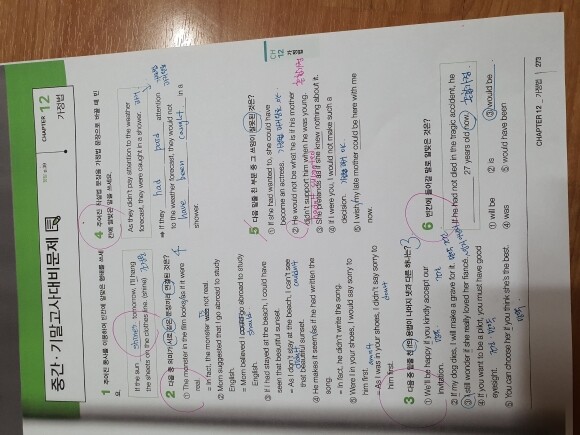 중간·기말고사대비문제
CHAPTER 12
가정법
1 주어진 동사를 이용하여 빈칸에 알맞은 형태를 쓰세요.
If the sun shines tomorrow, I'll hang
the sheets on the clothes line. (shine)
2 다음 중 의미가 서로 같은 문장끼리 연결된 것은? 4
① The monster in the film looks as if it were
real.
= In fact, the monster was not real.
② Mom suggested that I go abroad to study
English.
= Mom believed I could go abroad to study
English.
③ If I had stayed at the beach, I could have
seen that beautiful sunset.
= As I don't stay at the beach, I can't see
that beautiful sunset.
④ He makes it seem as if he had written the
song.
= In fact, he didn't write the song.
⑤ Were I in your shoes, I would say sorry to
him first.
= As I was in your shoes, I didn't say sorry to
him first.
3 다음 중 밑줄 친 if의 용법이 나머지 넷과 다른 하나는? 3
① We'll be happy if you kindly accept our
invitation.
② If my dog dies, I will make a grave for it.
③ I still wonder if she really loved her fiance.
④ If you want to be a pilot, you must have good
eyesight.
⑤ You can choose her if you think she's the best.
4 주어진 직설법 문장을 가정법 문장으로 바꿀 때 빈
칸에 알맞은 말을 쓰세요.
As they didn't pay attention to the weather
forecast, they were caught in a shower.
⇒ If they had paid attention
to the weather forecast, they would not
have been caught in a
shower.
5 다음 밑줄 친 부분 중 그 쓰임이 잘못된 것은?
① If she had wanted to, she could have
become an actress.
② He would not be what he is if his mother
didn't support him when he was young.
③ She pretends as if she knew nothing about it.
④ If I were you, I would not make such a
decision.
⑤ I wish my late mother could be here with me
now.
6 빈칸에 들어갈 말로 알맞은 것은?
If he had not died in the tragic accident, he
27 years old now. 혼합가정.
① will be
② is
③ would be
④ was
⑤ would have been
CH
12
가정법
CHAPTER 12 _ 가정법 273